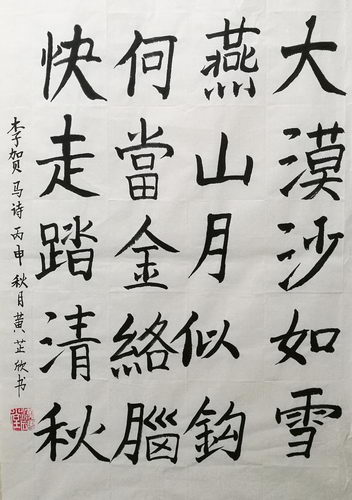 大漠沙如雪
燕山月似鈎
何當金絡腦
快走踏清秋
李贺马诗丙申秋月黄芷欣书